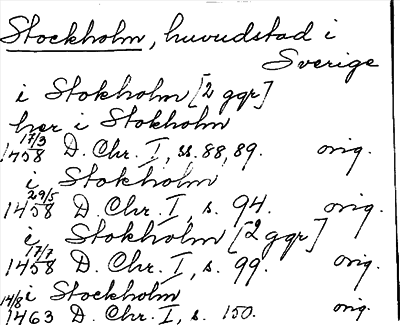 Stockholm, huvudstad i
Sverige
i Stokholm [2 ggr]
her i Stokholm
1458 17/3 D. Chr. I, ss. 88, 89. orig.
i Stokholm
1458 29/5 D. Chr. I, s. 94. orig.
i Stokholm [2 ggr]
1458 17/7 D. Chr. I, s. 99. orig.
i Stockholm
1463 14/8 D. Chr. I, s. 150. orig.